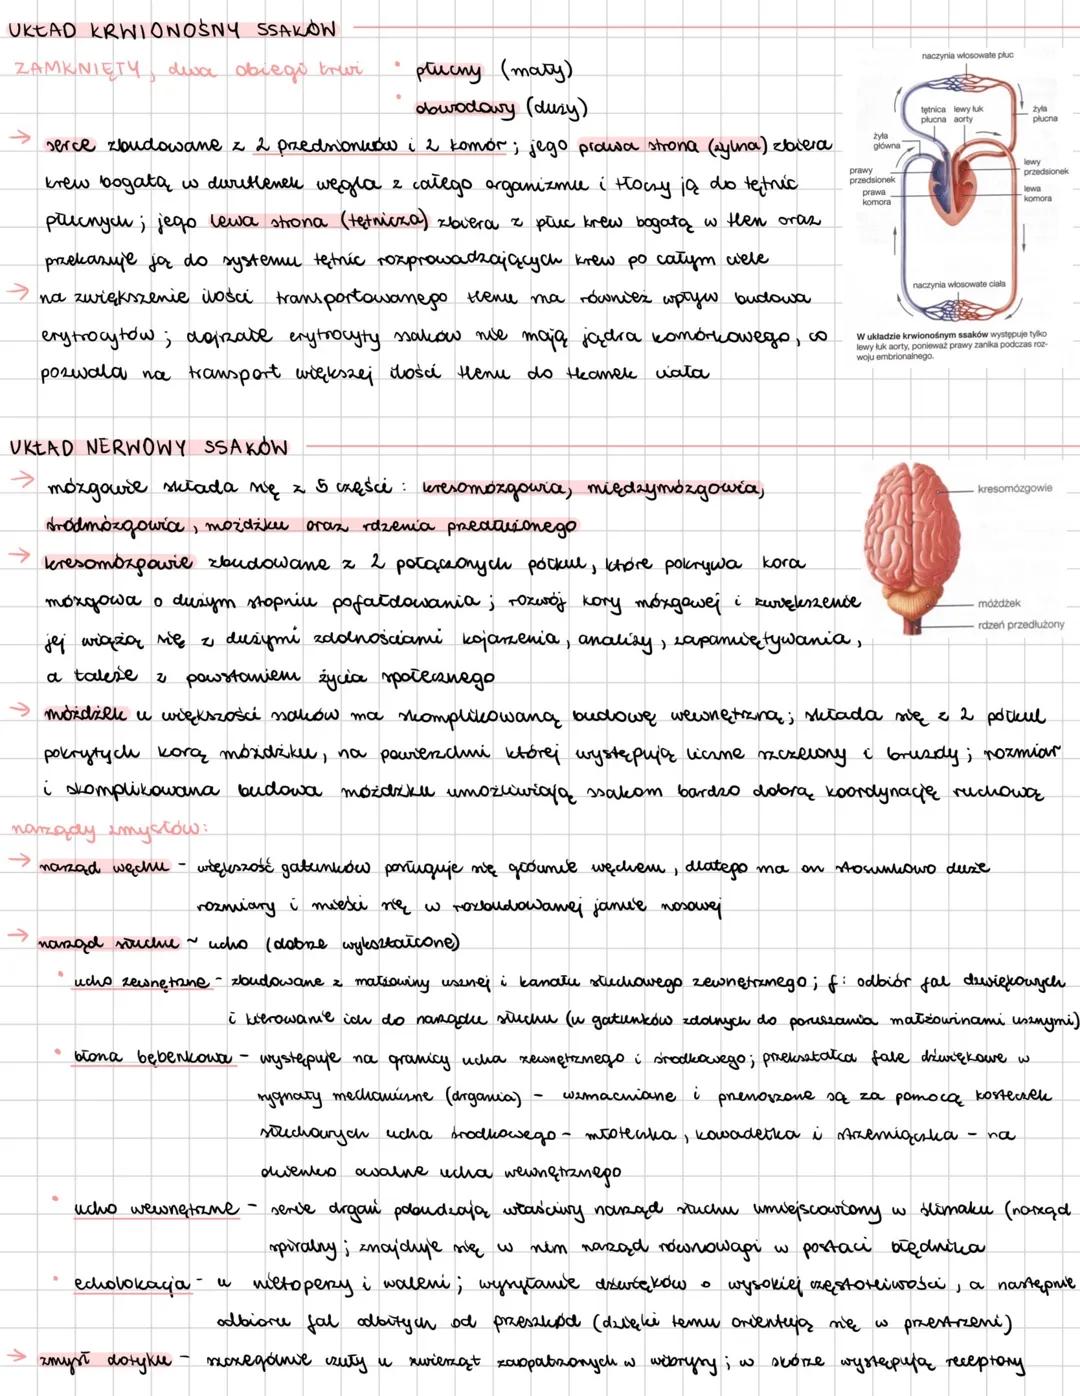 UKŁAD KRWIONOŚNY SSAKÓW
ZAMKNIĘTY, dwa obiegi krwi • płucny (mały)
• obwodowy (duży)
→ serce zbudowane z 2 przedsionków i 2 komór; jego prawa strona (żylna) zbiera
krew bogatą w dwutlenek węgla z całego organizmu i tłoczy ją do tętnic
płucnych; jego lewa strona (tętnicza) zbiera z płuc krew bogatą w tlen oraz
przekazuje ją do systemu tętnic rozprowadzających krew po całym ciele
→ na zwiększenie ilości transportowanego tlenu ma również wpływ budowa
erytrocytów; dojrzałe erytrocyty ssaków nie mają jądra komórkowego, co
pozwala na transport większej ilości tlenu do tkanek ciała
naczynia włosowate płuc
tętnica płucna
lewy łuk aorty
żyła płucna
żyła główna
prawy przedsionek
prawa komora
lewy przedsionek
lewa komora
naczynia włosowate ciała
W układzie krwionośnym ssaków występuje tylko
lewy łuk aorty, ponieważ prawy zanika podczas roz-
woju embrionalnego.
UKŁAD NERWOWY SSAKÓW
→ mózgowie składa się z 5 części: kresomózgowia, międzymózgowia,
śródmózgowia, móżdżku oraz rdzenia przedłużonego
→ kresomózgowie zbudowane z 2 połączonych półkul, które pokrywa kora
mózgowa o dużym stopniu pofałdowania; rozwój kory mózgowej i zwiększenie
jej wiążą się z dużymi zdolnościami kojarzenia, analizy, zapamiętywania,
a także z powstaniem życia społecznego
kresomózgowie
móżdżek
rdzeń przedłużony
→ móżdżek u większości ssaków ma skomplikowaną budowę wewnętrzną; składa się z 2 półkul
pokrytych korą móżdżku, na powierzchni której występują liczne szczeliny i bruzdy; rozmiar
i skomplikowana budowa móżdżku umożliwiają ssakom bardzo dobrą koordynację ruchową
narządy zmysłów:
→ narząd węchu - większość gatunków posługuje się głównie węchem, dlatego ma on stosunkowo duże
rozmiary i mieści się w rozbudowanej jamie nosowej
→ narząd słuchu ~ ucho (dobrze wykształcone)
• ucho zewnętrzne - zbudowane z małżowiny usznej i kanału słuchowego zewnętrznego; f: odbiór fal dźwiękowych
i kierowanie ich do narządu słuchu (u gatunków zdolnych do poruszania małżowinami usznymi)
• błona bębenkowa - występuje na granicy ucha zewnętrznego i środkowego; przekształca fale dźwiękowe w
sygnały mechaniczne (drgania) - wzmacniane i przenoszone są za pomocą kosteczek
słuchowych ucha środkowego - młoteczka, kowadełka i strzemiączka - na
okienko owalne ucha wewnętrznego
• ucho wewnętrzne - serie drgań pobudzają właściwy narząd słuchu umiejscowiony w ślimaku (narząd
spiralny; znajduje się w nim narząd równowagi w postaci błędnika
• echolokacja - u nietoperzy i waleni; wysyłanie dźwięków o wysokiej częstotliwości, a następnie
odbioru fal odbitych od przeszkód (dzięki temu orientują się w przestrzeni)
→ zmysł dotyku - szczególnie czuły u zwierząt zaopatrzonych w wibrysy; w skórze występują receptory